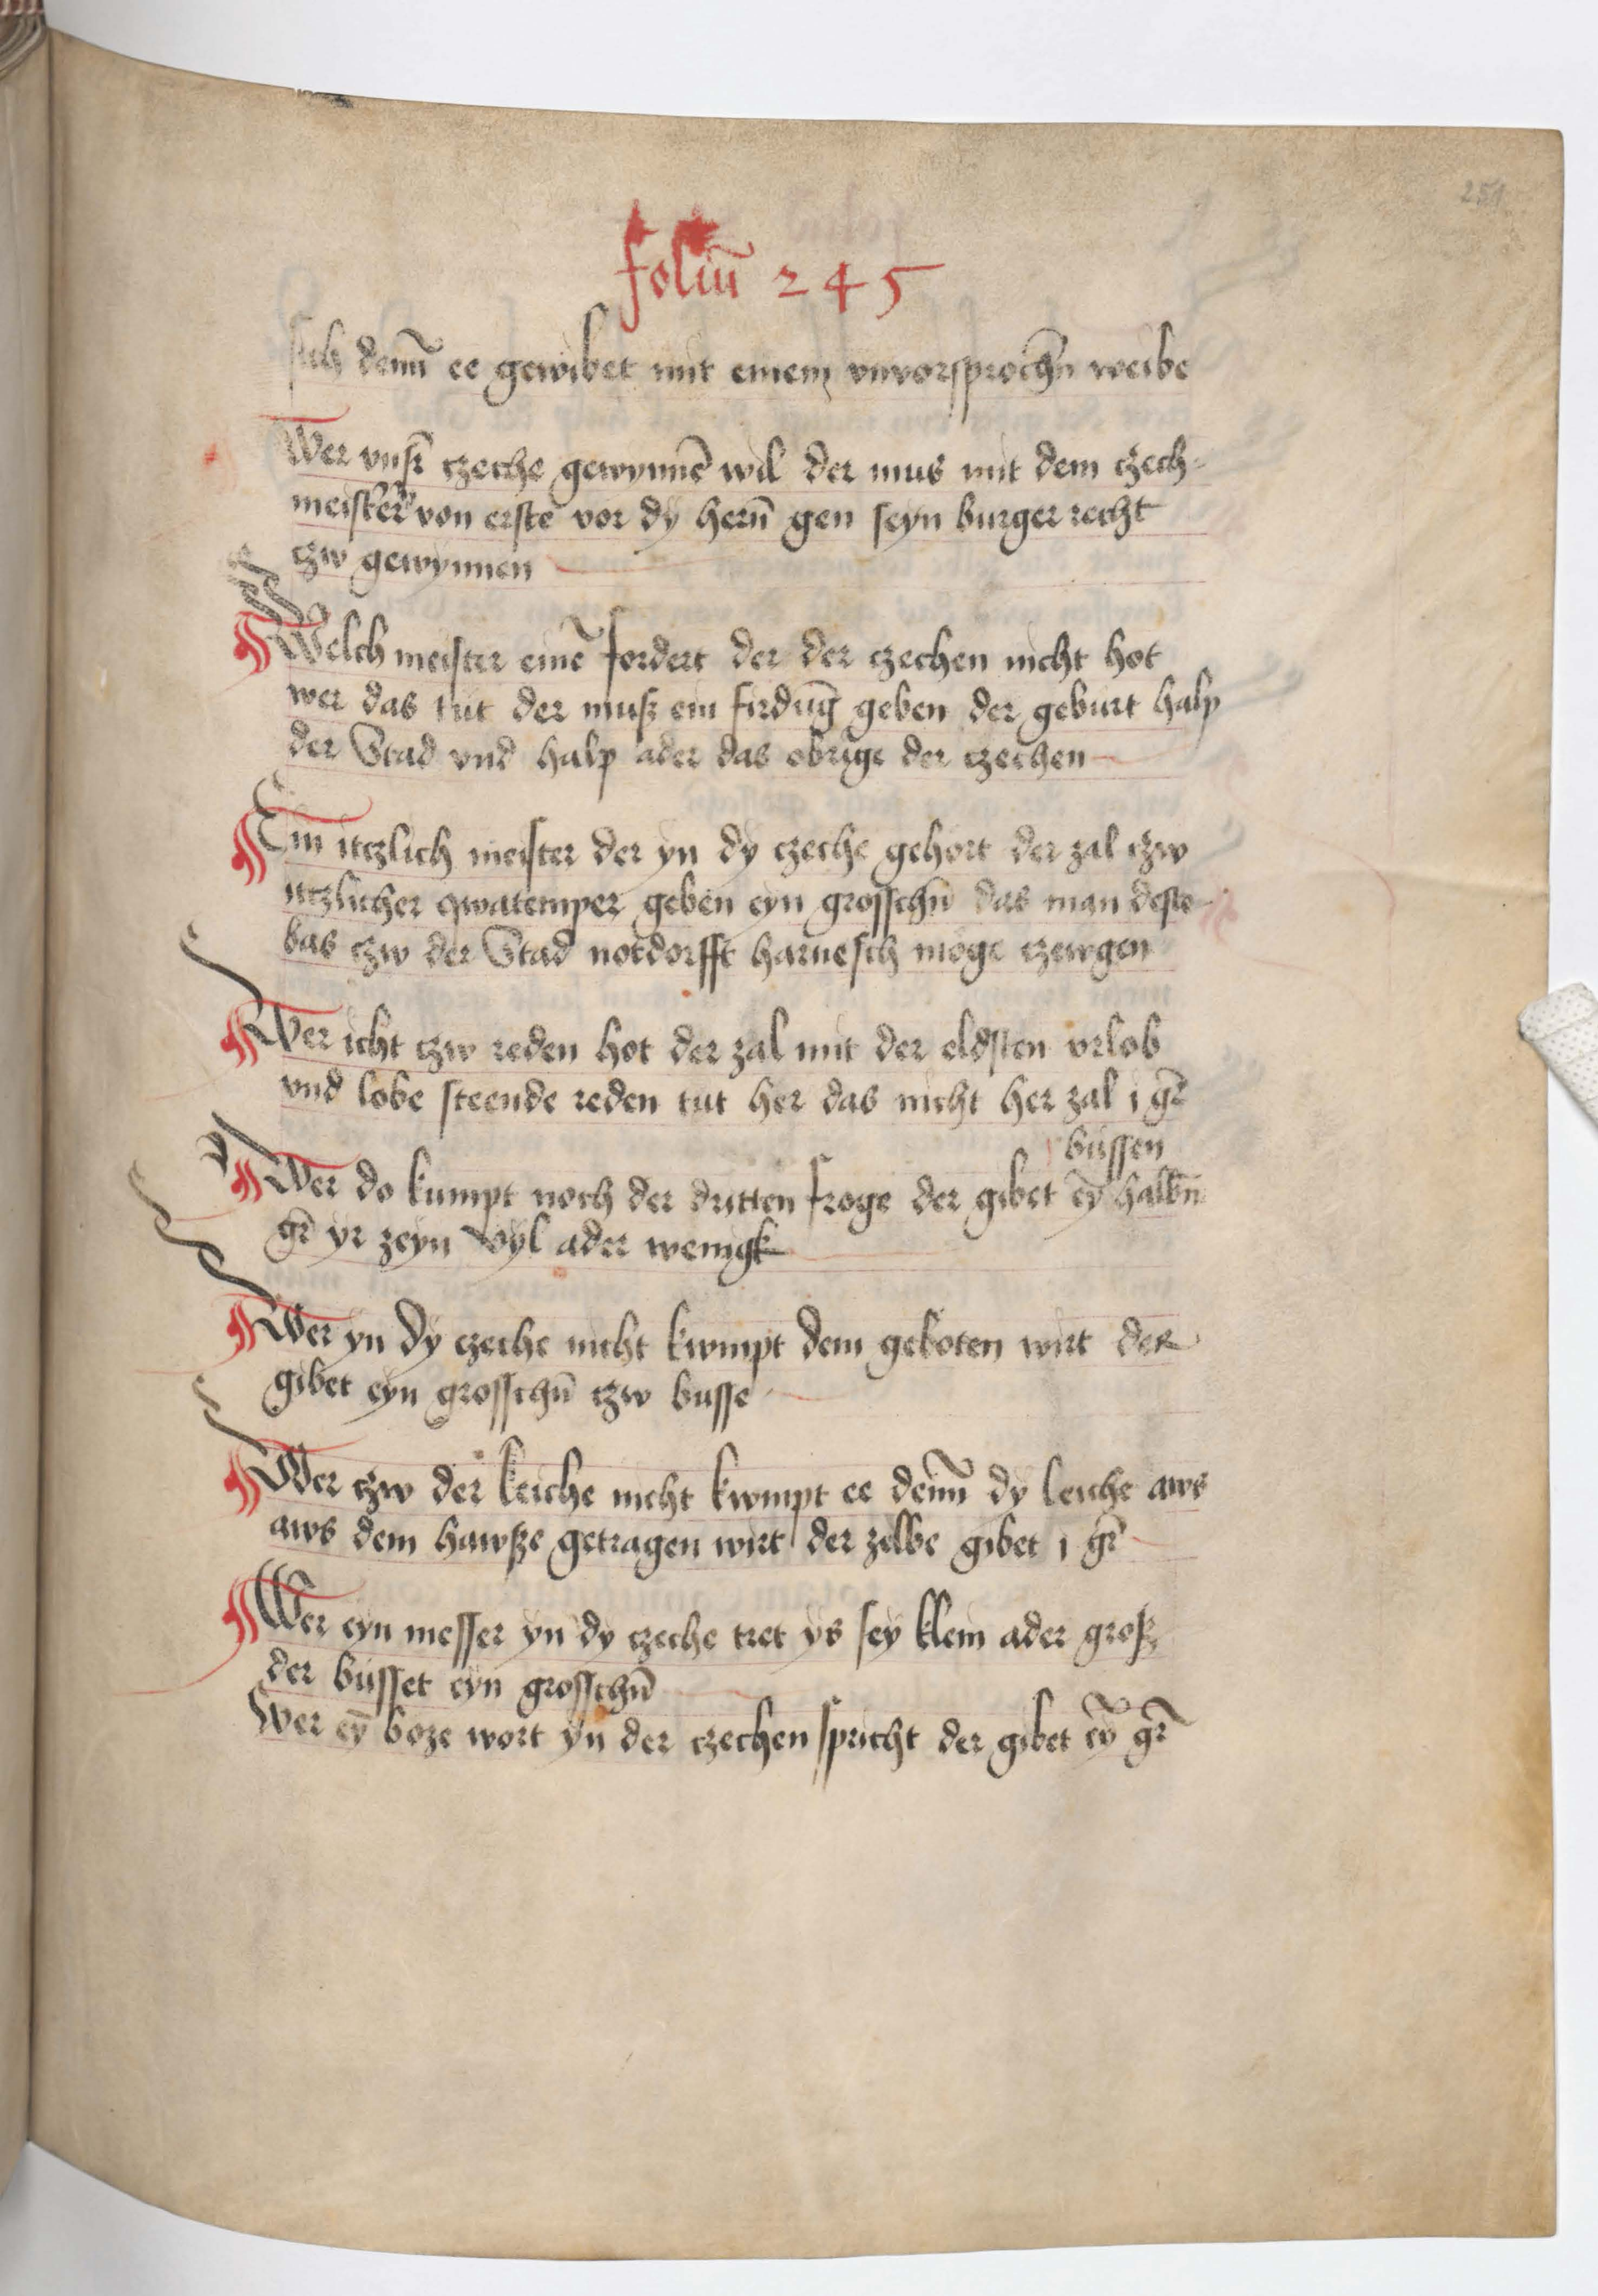 251
foliu̅ 245
sich denn̅ ee gewibet mit einem vnvorsproche̅n weibe
Wer vnsr̅ czeche gewynne̅ wil der mus mit dem czech=
meister von erste vor dÿ hern̅ gen seyn burger recht
czw gewÿnnen
Welch meister eine̅ fordert der der czechen nicht hot
wer das tut der muß ein firdu̅g geben der geburt halp
der Stad vnd halp ader das obrige der czechen
Ein itczlich meister der yn dy czeche gehort der zal czw
itczlicher qwatemper geben eyn grosschn̅ das man deste
bas czw der Stad notdorfft harnesch moge czewgen
Wer icht czw reden hot der zal mit der eldsten vrlob
vnd lobe steende reden tut her das nicht her zal j gr̅
bussen
Wer do kumpt noch der dritten froge der gibet ey̅ halbn̅
gr̅ yr zeyn vÿl ader wenigk
Wer yn dÿ czeche nicht kwmpt dem geboten wirt der
gibet eyn grosschn̅ czw busse
Wer czw der leiche nicht kwmpt ee denn̅ dy leiche aws
aws dem hawsze getragen wirt der zelbe gibet j gr̅
Wer eyn messer yn dy czeche tret ys seÿ klein ader groß
der busset eyn grosschn̅
Wer ey̅ boze wort ÿn der czechen spricht der gibet ey̅ gr̅